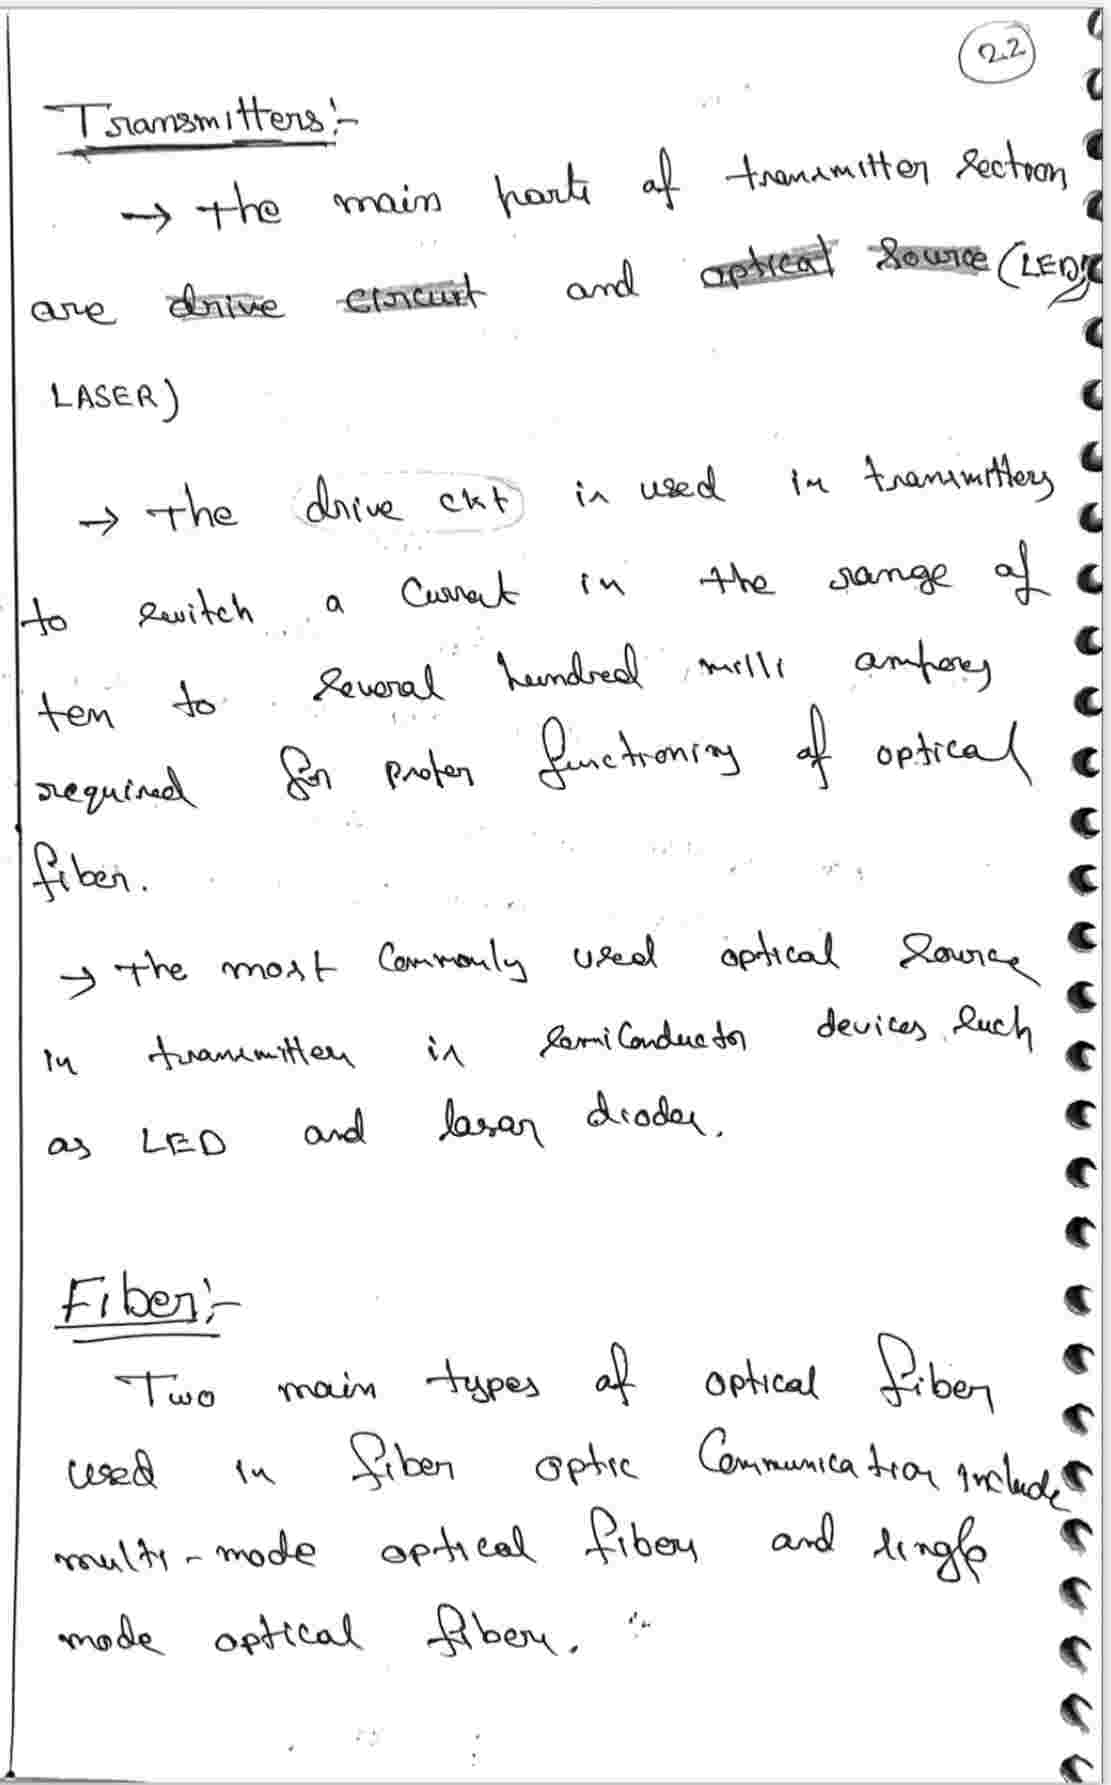 2.2
Transmitters:-
→ The main parts of transmitter section
are drive circuit and optical source (LED,
LASER)
→ The drive ckt is used in transmitters
to switch a current in the range of
ten to several hundred milli amperes
required for proper functioning of optical
fiber.
→ The most commonly used optical source
in transmitter is semiconductor devices such
as LED and laser diodes.
Fiber:-
Two main types of optical fiber
used in fiber optic communication include
multi-mode optical fiber and single
mode optical fiber.